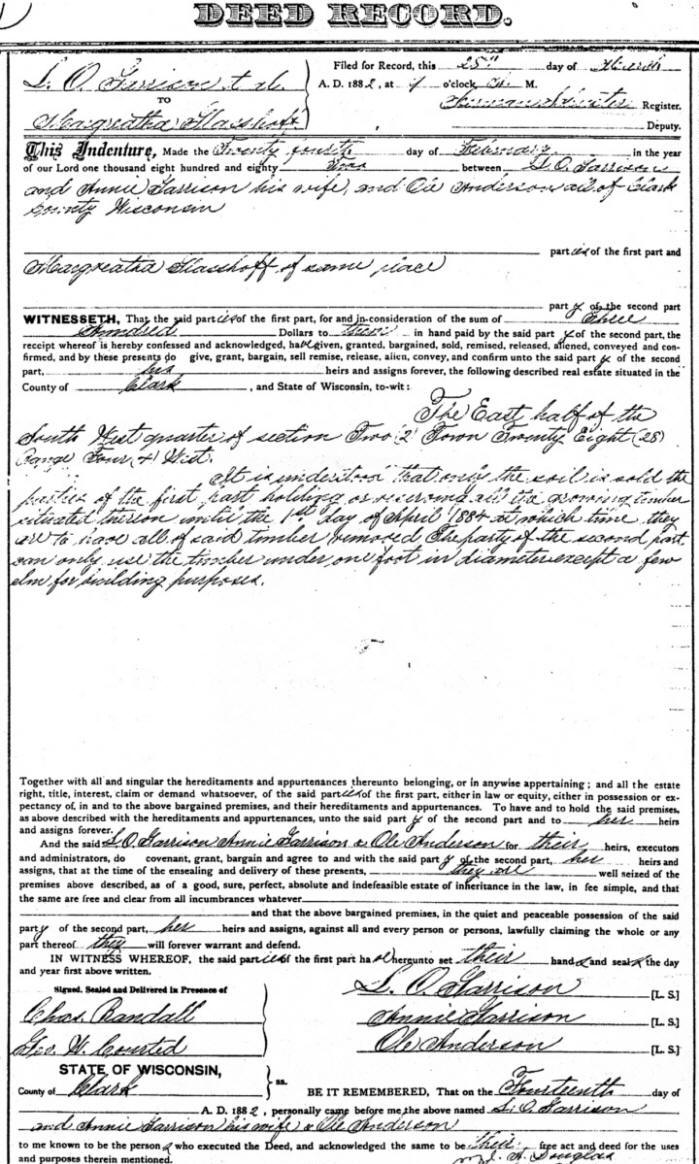 DEED RECORD.
L. O. Garrison et al.
TO
Margreatha Hasshoff
Filed for Record, this 25" day of March
A. D. 1882, at o'clock M.
Register.
Deputy.
This Indenture, Made the Twenty fourth day of February in the year
of our Lord one thousand eight hundred and eighty Two between L. O. Garrison
and Annie Garrison his wife, and Ole Anderson all of Clark
County Wisconsin
parties of the first part and
Margreatha Hasshoff of same place
party of the second part
WITNESSETH, That the said parties of the first part, for and in consideration of the sum of Three
Hundred Dollars to them in hand paid by the said party of the second part, the
receipt whereof is hereby confessed and acknowledged, have given, granted, bargained, sold, remised, released, aliened, conveyed and con-
firmed, and by these presents do give, grant, bargain, sell remise, release, alien, convey, and confirm unto the said party of the second
part, his heirs and assigns forever, the following described real estate situated in the
County of Clark, and State of Wisconsin, to-wit:
The East half of the
South West quarter of section Two (2) Town Twenty Eight (28)
Range Four (4) West.
It is understood that only the soil is sold the
parties of the first part holding or reserving all the growing timber
situated thereon until the 1st day of April 1884 at which time they
are to have all of said timber removed The party of the second part
can only use the timber under one foot in diameter except a few
elm for building purposes.
Together with all and singular the hereditaments and appurtenances thereunto belonging, or in anywise appertaining; and all the estate
right, title, interest, claim or demand whatsoever, of the said parties of the first part, either in law or equity, either in possession or ex-
pectancy of, in and to the above bargained premises, and their hereditaments and appurtenances. To have and to hold the said premises,
as above described with the hereditaments and appurtenances, unto the said party of the second part and to her heirs
and assigns forever.
And the said L. O. Garrison Annie Garrison & Ole Anderson for their heirs, executors
and administrators, do covenant, grant, bargain and agree to and with the said party of the second part, her heirs and
assigns, that at the time of the ensealing and delivery of these presents, they are well seized of the
premises above described, as of a good, sure, perfect, absolute and indefeasible estate of inheritance in the law, in fee simple, and that
the same are free and clear from all incumbrances whatever
and that the above bargained premises, in the quiet and peaceable possession of the said
party of the second part, her heirs and assigns, against all and every person or persons, lawfully claiming the whole or any
part thereof they will forever warrant and defend.
IN WITNESS WHEREOF, the said parties of the first part have hereunto set their hands and seals the day
and year first above written.
Signed, Sealed and Delivered in Presence of
Chas. Randall
Geo. W. Cousted
L. O. Garrison [L. S.]
Annie Garrison [L. S.]
Ole Anderson [L. S.]
STATE OF WISCONSIN,
County of Clark } ss.
BE IT REMEMBERED, That on the Fourteenth day of
A. D. 1882, personally came before me the above named L. O. Garrison
and Annie Garrison his wife & Ole Anderson
to me known to be the persons who executed the Deed, and acknowledged the same to be their free act and deed for the uses
and purposes therein mentioned. Douglas